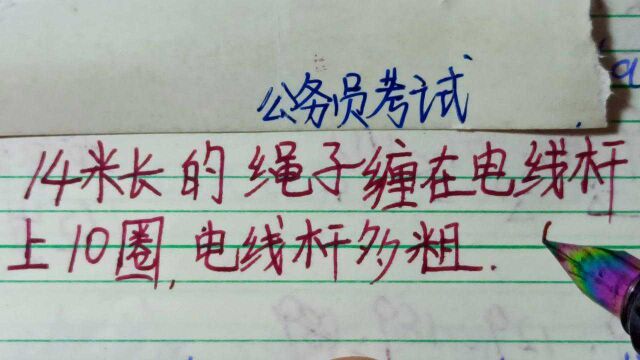 公务员考试
14米长的绳子缠在电线杆
上10圈,电线杆多粗.